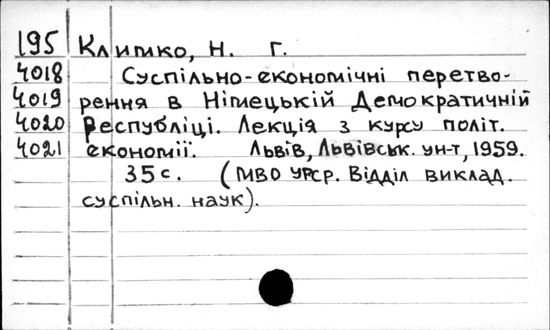 195 Климко, Н. Г.
4018 Суспільно-економічні перетво-
4019 рення в Німецькій Демократичній
4020 Республіці. Лекція з курсу політ.
4021 економії. Львів, Львівськ. ун-т, 1959.
35 с. (МВО УРСР. Відділ виклад.
суспільн. наук).